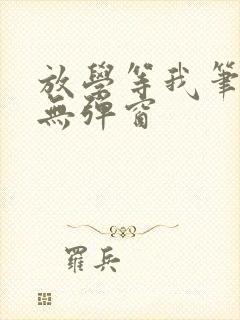 放學等我筆
無彈窗
羅兵